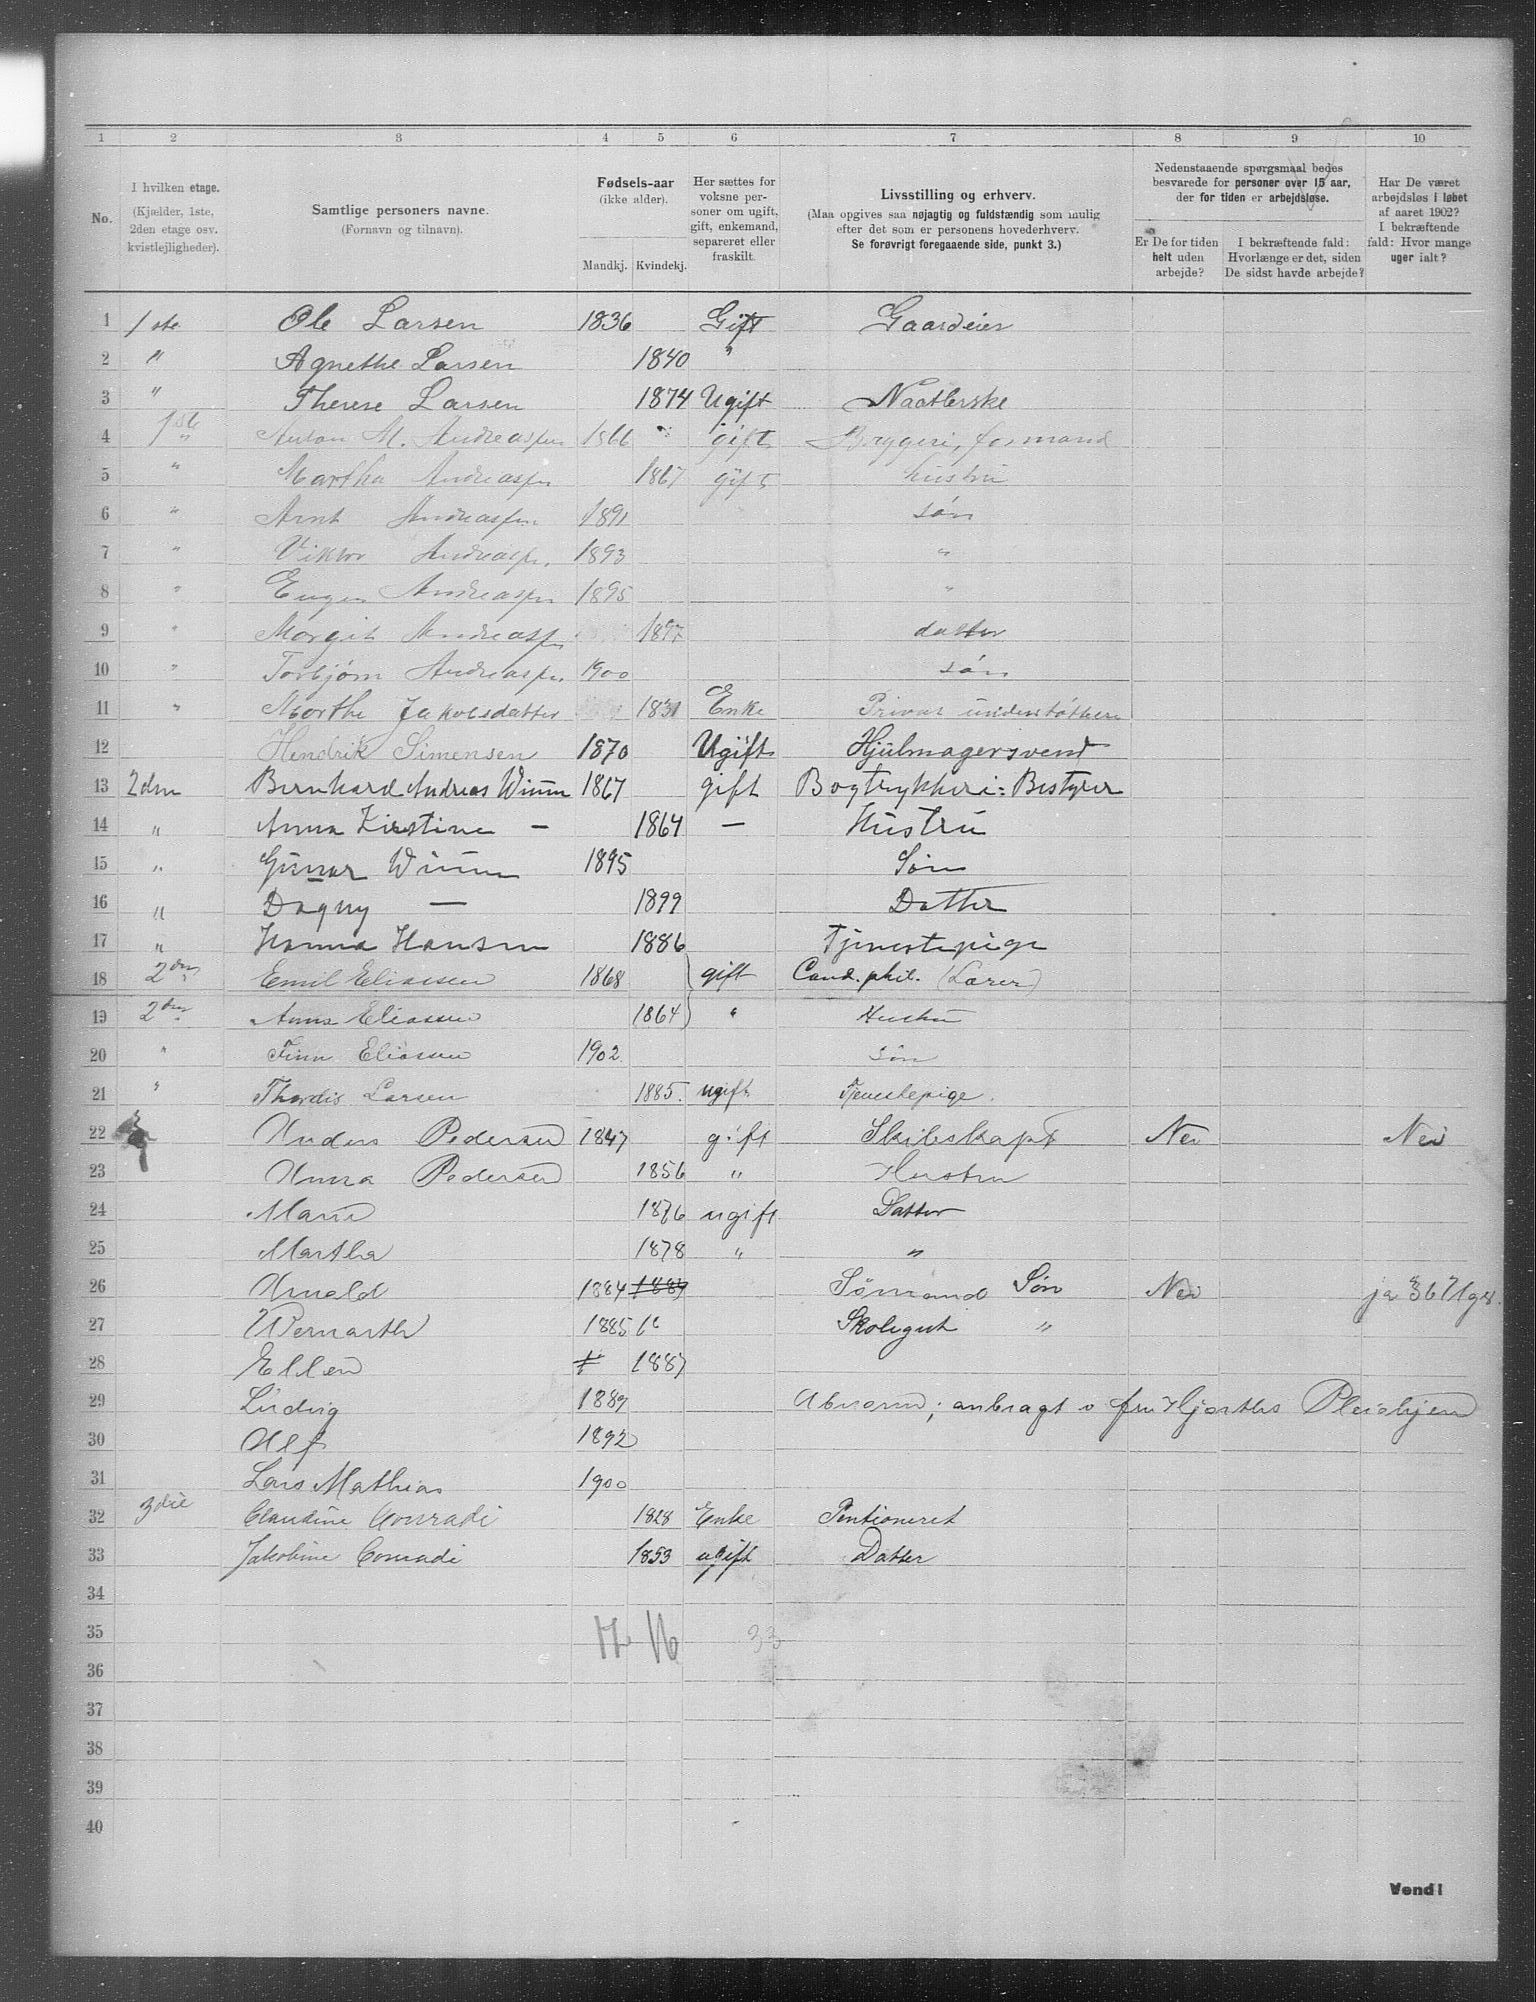 1 2 3 4 5 6 7 8 9 10
No.
I hvilken etage.
(Kjælder, 1ste,
2den etage osv.
kvistlejligheder).
Samtlige personers navne.
(Fornavn og tilnavn).
Fødsels-aar
(ikke alder).
Mandkj. Kvindekj.
Her sættes for
voksne per-
soner om ugift,
gift, enkemand,
separeret eller
fraskilt.
Livsstilling og erhverv.
(Maa opgives saa nøjagtig og fuldstændig som mulig
efter det som er personens hovederhverv.
Se forøvrigt foregaaende side, punkt 3.)
Nedenstaaende spørgsmaal bedes
besvarede for personer over 15 aar,
der for tiden er arbejdsløse.
Er De for tiden
helt uden
arbejde?
I bekræftende fald:
Hvorlænge er det, siden
De sidst havde arbejde?
Har De været
arbejdsløs i løbet
af aaret 1902?
I bekræftende
fald: Hvor mange
uger ialt?
1 1ste Ole Larsen 1836 Gift Gaardeier
2 " Agnethe Larsen 1840 "
3 " Therese Larsen 1874 Ugift Naatlerske
4 1ste " Anton M. Andreassen 1866 gift Bryggeri, formand
5 " Martha Andreassen 1867 gift hustru
6 " Arnt Andreassen 1891 søn
7 " Viktor Andreassen 1893 "
8 " Eugen Andreassen 1895 "
9 " Margit Andreassen 1897 datter
10 " Torbjørn Andreassen 1900 søn
11 " Marthe Jakobsdatter 1831 Enke Privat understøttere
12 Hendrik Simensen 1870 Ugift Hjulmagersvend
13 2den Bernhard Andreas Wium 1867 gift Bogtrykkeri: Bestyrer
14 " Anna Kirstine — 1864 — Hustru
15 " Gunar Wium 1895 Søn
16 " Dagny — 1899 Datter
17 " Hanna Hansen 1886 Tjenestepige
18 2den Emil Eliassen 1868 gift Cand. phil. (Lærer)
19 2den Anna Eliassen 1864 " Hustru
20 " Finn Eliassen 1902 søn
21 " Thordis Larsen 1885. ugift Tjenestepige.
22 Anders Pedersen 1847 gift Skibskapt Nei Nei
23 Anna Pedersen 1856 " Hustru
24 Marie 1876 ugift Datter
25 Martha 1878 " "
26 Arnold 1884 1884 Sømand Søn Nei ja 36 Uger.
27 Bernarth 1885 Skolegut "
28 Ellen 1887
29 Ludvig 1889 Abnorm; anbragt v fru Hjorths Pleiehjem
30 Alf 1892
31 Lars Mathias 1900
32 3die Claudine Conradi 1828 Enke Pentioneret
33 Jakobine Conradi 1853 ugift Datter
34
35 17 16 33
36
37
38
39
40
Vend!